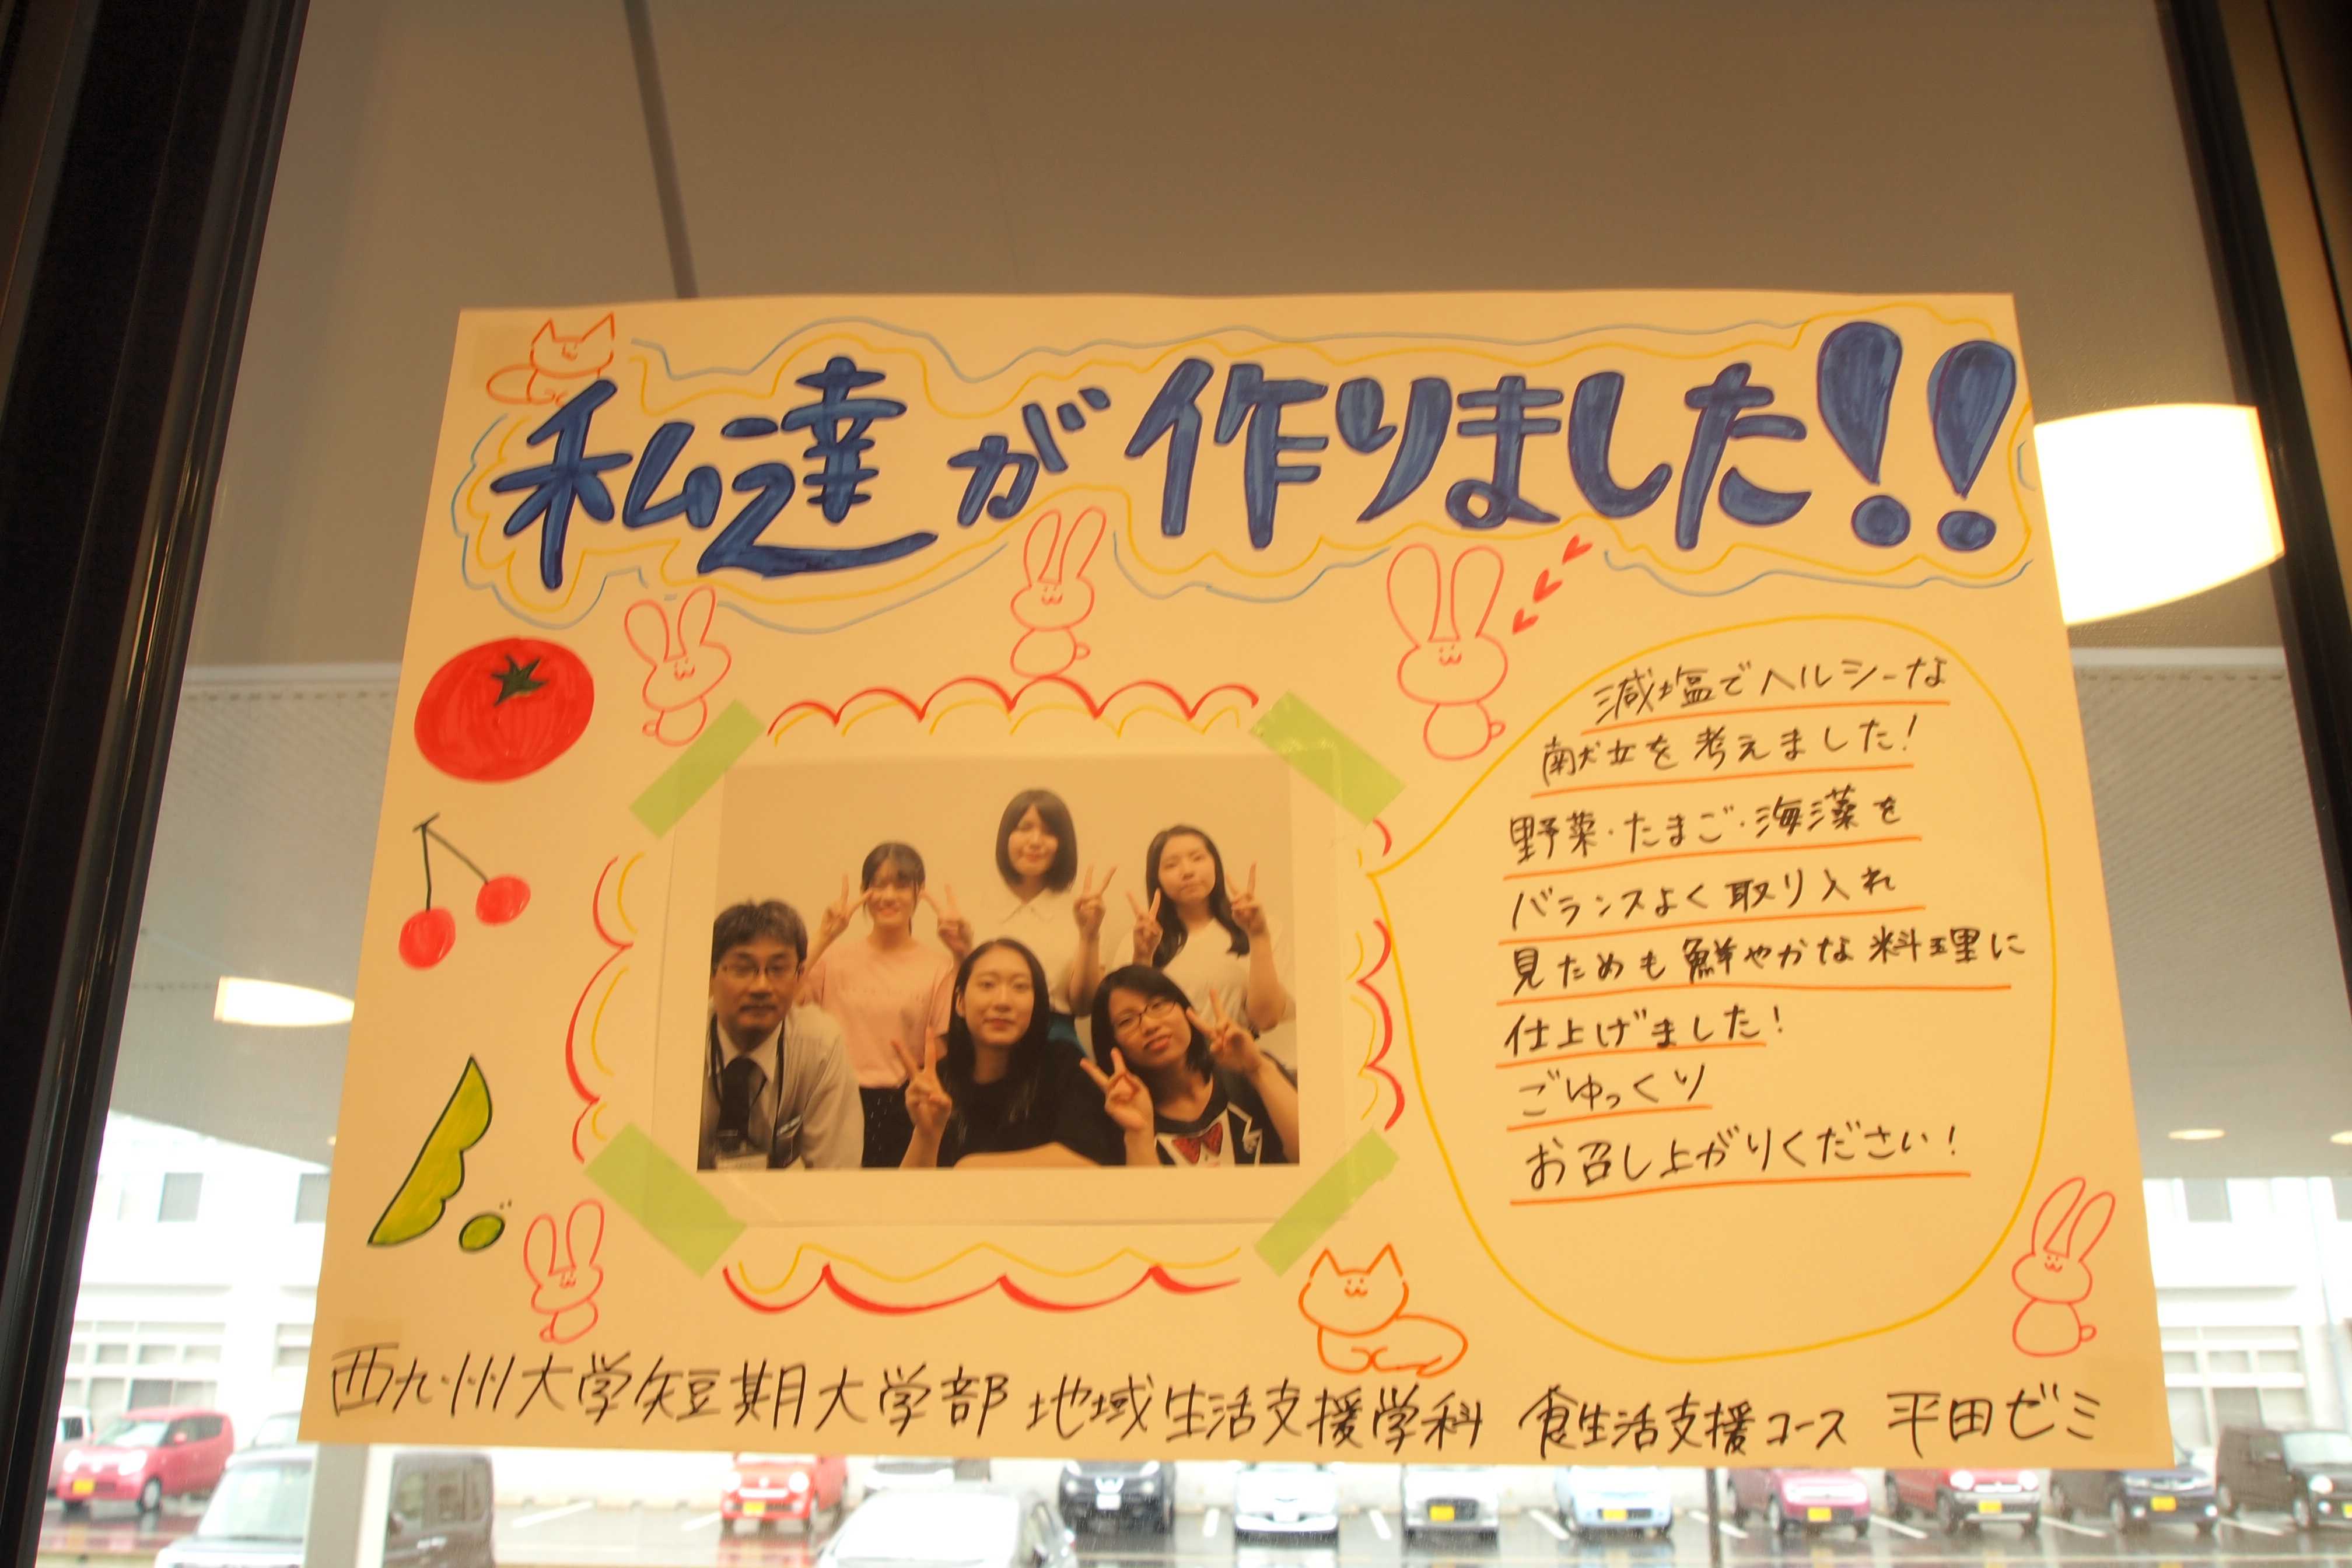 私達が作りました!!
減塩でヘルシーな
献立を考えました!
野菜・たまご・海藻を
バランスよく取り入れ
見ためも鮮やかな料理に
仕上げました!
ごゆっくり
お召し上がりください!
西九州大学短期大学部 地域生活支援学科 食生活支援コース 平田ゼミ